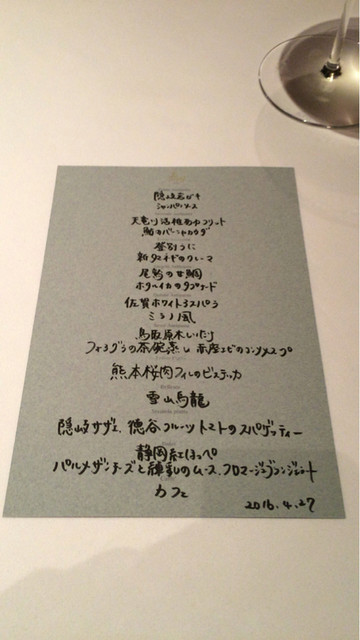 隠岐岩ガキ
シャンパンソース
天竜川活稚あゆフリット
鮎のバーニャカウダ
登別うに
新タマネギのクレーマ
尾鷲の甘鯛
ホタルイカのタプナード
佐賀ホワイトアスパラ
ミラノ風
鳥取原木しいたけ
フォアグラの茶碗蒸し 赤座エビのコンソメスープ
熊本桜肉フィレのビステッカ
雪山烏龍
隠岐サザエ、徳谷フルーツトマトのスパゲッティー
静岡紅ほっぺ
パルメザンチーズと練乳のムース、フロマージュブランジェラート
カフェ
2016.4.27